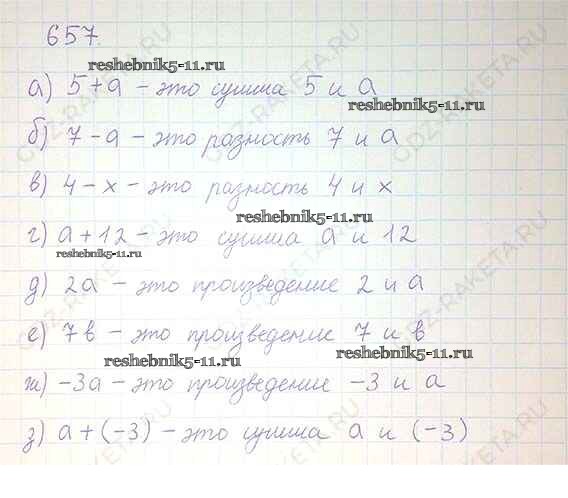 657.
reshebnik5-11.ru
а) 5+а – это сумма 5 и а
reshebnik5-11.ru
б) 7-а – это разность 7 и а
в) 4-х – это разность 4 и х
reshebnik5-11.ru
г) а+12 – это сумма а и 12
reshebnik5-11.ru
д) 2а – это произведение 2 и а
е) 7в – это произведение 7 и в
reshebnik5-11.ru reshebnik5-11.ru
ж) -3а – это произведение -3 и а
з) а+(-3) – это сумма а и (-3)
GDZ-RAKETA.RU